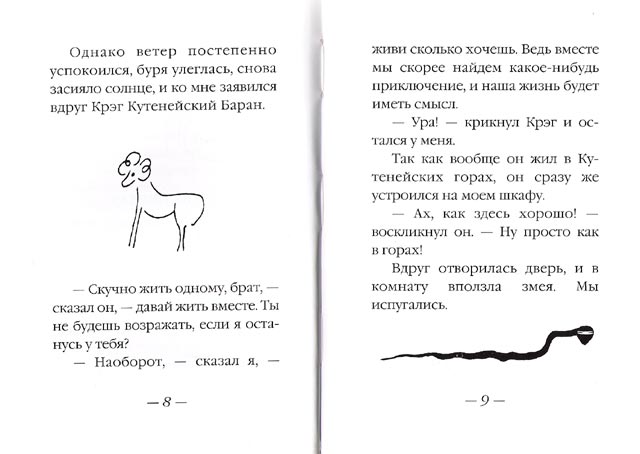 Однако ветер постепенно
успокоился, буря улеглась, снова
засияло солнце, и ко мне заявился
вдруг Крэг Кутенейский Баран.
— Скучно жить одному, брат, —
сказал он, — давай жить вместе. Ты
не будешь возражать, если я оста-
нусь у тебя?
— Наоборот, — сказал я, —
— 8 —
живи сколько хочешь. Ведь вместе
мы скорее найдем какое-нибудь
приключение, и наша жизнь будет
иметь смысл.
— Ура! — крикнул Крэг и ос-
тался у меня.
Так как вообще он жил в Ку-
тенейских горах, он сразу же
устроился на моем шкафу.
— Ах, как здесь хорошо! —
воскликнул он. — Ну просто как
в горах!
Вдруг отворилась дверь, и в
комнату вползла змея. Мы
испугались.
— 9 —